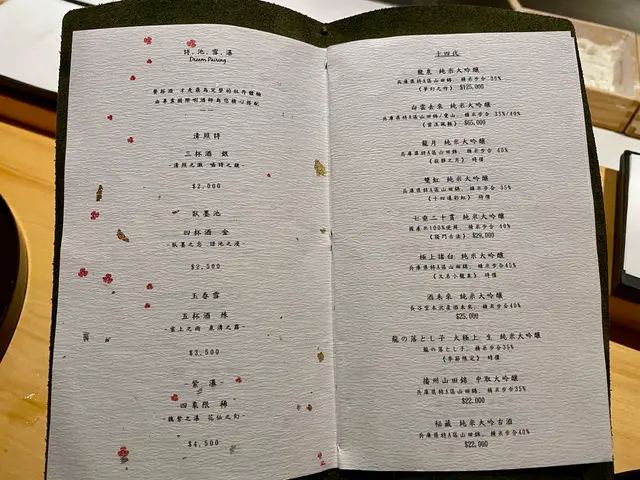 詩．池．雪．瀑
Dream Pairing
餐搭酒 才是最為完整的饗丹體驗
由專業國際唎酒師為您精心搭配
清照詩
三杯酒 銀
-清照之漱 喻詩之鏡-
$2,000
臥墨池
四杯酒 金
-臥墨之志 詠池之波-
$2,500
玉春雪
五杯酒 殊
-雲上之雨 東溝之霧-
$3,500
-紫瀑-
四象限 稀
-魏紫之瀑 花仙之幻-
$4,500
十四代
龍泉 純米大吟釀
兵庫県特A區山田錦, 精米步合35%
(夢幻之作) $125,000
白雲去來 純米大吟釀
兵庫県特A區山田錦/愛山, 精米步合 35%/40%
(雲淡風輕) $65,000
龍月 純米大吟釀
兵庫県特A區山田錦, 精米步合 40%
(寂靜之月) 時價
雙虹 純米大吟釀
兵庫県特A區山田錦, 精米步合35%
(十四道彩虹) 時價
七垂二十貫 純米大吟釀
國產米100%使用, 精米步合 40%
$29,000
極上諸白 純米大吟釀
兵庫県特A區山田錦, 精米步合45%
(又名小龍泉) 時價
酒未來 純米大吟釀
精米步合40%
$25,000
龍の落とし子 大極上 生 純米大吟釀
龍の落とし子, 精米步合35%
(季節限定) 時價
播州山田錦 中取大吟釀
兵庫県特A區山田錦, 精米步合35%
$22,000
秘蔵 純米大吟古酒
兵庫県特A區山田錦, 精米步合40%
$22,000